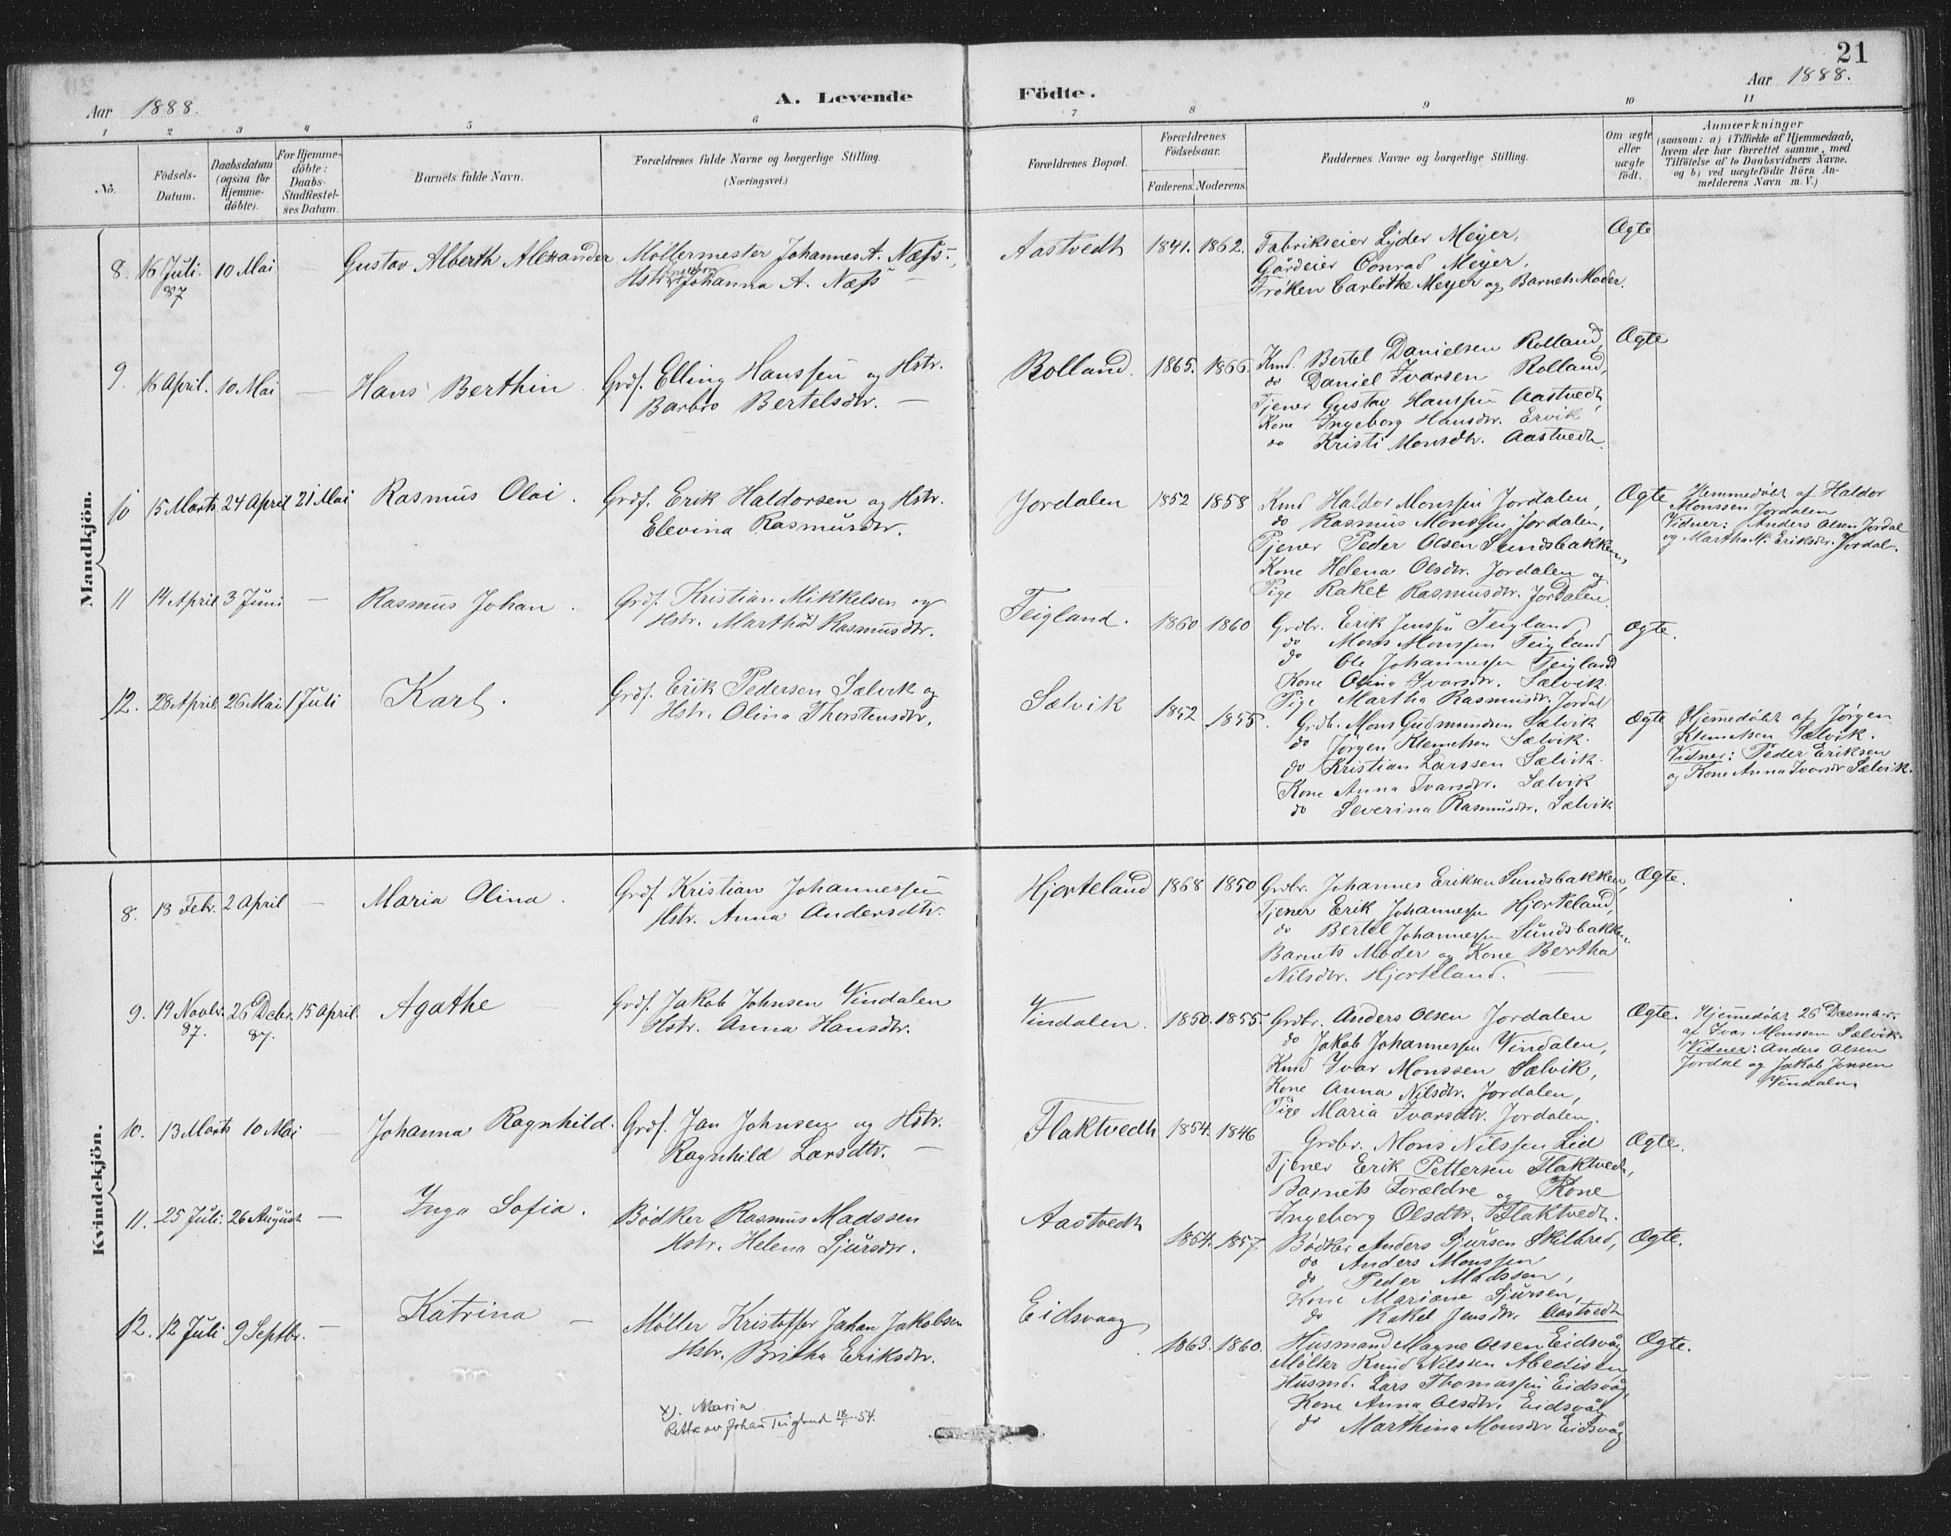 21
Aar 1888.
A. Levende Födte.
Aar 1888.
1 2 3 4 5 6 7 8 9 10 11
No.
Födsels-
Datum.
Daabsdatum
(ogsaa for
Hjemme-
döbte).
For Hjemme-
döbte:
Daabs-
Stadfæstel-
ses Datum.
Barnets fulde Navn.
Forældrenes fulde Navne og borgerlige Stilling.
(Næringsvei.)
Forældrenes Bopæl.
Forældrenes
Födselsaar.
Faderens. Moderens.
Faddernes Navne og borgerlige Stilling.
Om ægte
eller
uægte
födt.
Anmærkninger
(saasom: a) i Tilfælde af Hjemmedaab,
hvem der har forrettet samme, med
Tilföielse af to Daabsvidners Navne.
og b) ved uægtefödte Börn An-
melderens Navn m. V.)
Mandkjön.
8. 16 Juli 87 10 Mai — Gustav Alberth Alexander
Møllermester Johannes A. Næss
Hstr. Johanna A. Næss —
Aastvedt 1841. 1862.
Fabrikseier Lyder Meyer,
Gårdeier Conrad Meyer,
Frøken Carlotte Meyer og Barnets Moder.
Ægte
9. 16 April. 10 Mai — Hans Berthin
Grdf. Elling Hanssen og Hstr.
Barbro Bertelsdtr. —
Rolland. 1865. 1866.
Kmd. Bertel Danielsen Rolland,
do Daniel Ivarsen Rolland,
Tjener Gustav Hanssen Aastvedt,
Kone Ingeborg Hansdtr. Ervik
do Kristi Monsdtr. Aastvedt.
Ægte
10 15 Marts 24 April 21 Mai Rasmus Olai.
Grdf. Erik Haldorsen og Hstr.
Elevina Rasmusdtr.
Jordalen 1852 1858
Kmd Haldor Monssen Jordalen,
do Rasmus Monssen Jordalen,
Tjener Peder Olsen Sundsbakken,
Kone Helena Olsdtr. Jordalen og
Pige Rakel Rasmusdtr. Jordalen.
Ægte
Hjemmedøbt af Haldor
Monssen Jordalen
Vidner: Anders Olsen Jordal
og Martha M. Eriksdtr. Jordal.
11 14 April 3 Juni — Rasmus Johan.
Grdf. Kristian Mikkelsen og
Hstr. Martha Rasmusdtr.
Teigland. 1860 1860
Grdbr. Erik Jenssen Teigland
do Mons Monssen Teigland
do Ole Johannessen Teigland
Kone Olina Ivarsdtr. Sælvik
Pige Martha Rasmusdtr. Jordal
Ægte.
12. 28 April 26 Mai 1 Juli Karl.
Grdf. Erik Pedersen Sælvik og
Hstr. Olina Thorstensdtr.
Sælvik 1852 1855.
Grdbr. Mons Gudmundsen Sælvik
do Jørgen Klemetsen Sælvik.
do Kristian Larssen Sælvik.
Kone Anna Ivarsdtr. Sælvik
do Severina Rasmusdtr. Sælvik
Ægte
Hjemmedøbt af Jørgen
Klemetsen Sælvik.
Vidner: Peder Eriksen
og Kone Anna Ivarsdtr Sælvik.
Kvindekjön.
8. 18 Febr. 2 April — Maria Olina.
Grdf Kristian Johannessen
Hstr. Anna Andersdtr.
Hjorteland 1868 1850
Grdbr. Johannes Eriksen Sundsbakken,
Tjener Erik Johannessen Hjorteland,
do Bertel Johannessen Sundsbakken
Barnets Moder og Kone Bertha
Nilsdtr. Hjorteland.
Ægte.
9. 19 Novbr. 87. 26 Decbr. 87. 15 April. Agathe —
Grdf. Jakob Johnsen Vindalen
Hstr. Anna Hansdtr.
Vindalen. 1850. 1855.
Grdbr. Anders Olsen Jordalen
do Jakob Johannessen Vindalen,
Kmd Ivar Monssen Sælvik,
Kone Anna Nilsdtr. Jordalen,
Pige Maria Ivarsdtr. Jordalen.
Ægte.
Hjemmedøbt 26 Decmbr.
af Ivar Monssen Sælvik.
Vidner: Anders Olsen
Jordal og Jakob Jonsen
Vindalen
10. 13 Marts 10 Mai — Johanna Ragnhild.
Grdf. Jan Johnsen og Hstr.
Ragnhild Larsdtr. —
Flaktvedt 1854. 1846
Grdbr. Mons Nilssen Lid
Tjener Erik Pettersen Flaktvedt,
Barnets Forældre og Kone
Ingeborg Olsdtr. Flaktvedt.
Ægte.
11. 25 Juli. 26 August — Inga Sofia.
Bødker Rasmus Madssen
Hstr. Helena Sjursdtr.
Aastvedt 1854. 1857.
Bødker Anders Sjursen Skilbred,
do Anders Monssen
do Peder Madssen,
Kone Mariane Sjursen,
do Rakel Jensdtr. Aastvedt
Ægte.
12. 12 Juli 9 Septbr. — Katrina —
Møller Kristoffer Johan Jakobsen
Hstr. Britha Eriksdtr.
Eidsvaag. 1863. 1860.
Husmand Magne Olsen Eidsvåg
Møller Knud Nilssen
Husmd. Lars Thomassen Eidsvåg,
Kone Anna Olsdtr. Eidsvåg
do Marthina Monsdtr Eidsvåg
Ægte.
x). Maria
Rettes av Johan Teigland 18/1-54.